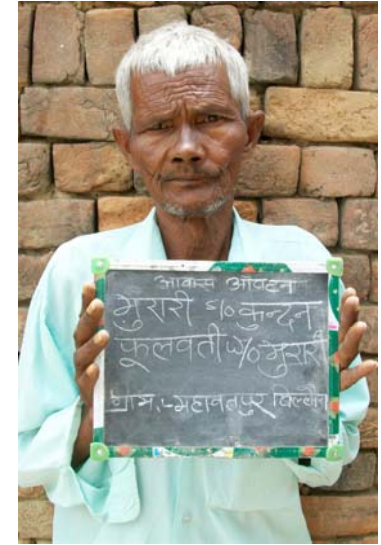 आवास आवंटन
मुरारी s/o कुन्दन
फूलवती w/o मुरारी
ग्राम:-महावतपुर बिल्हौर